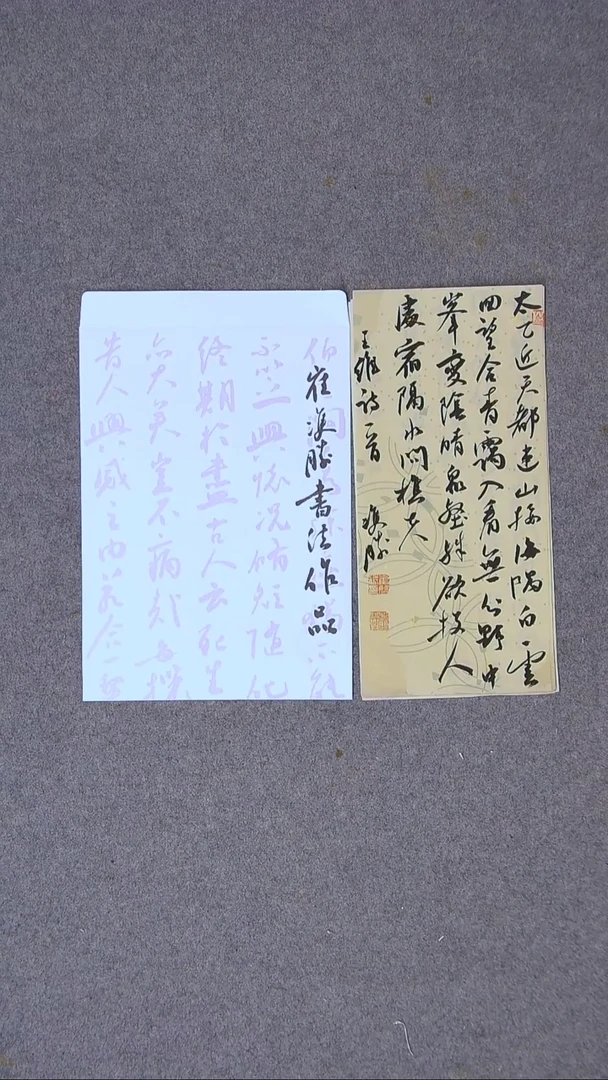 太乙近天都連山接海隅白雲
回望合青靄入看無分野中
峯變陰晴衆壑殊欲投人
處宿隔水問樵夫
王維詩一首
崔勝書法作品
不以之興懷況脩短隨化
終期於盡古人云死生
亦大矣豈不痛哉每攬
昔人興感之由若合一契